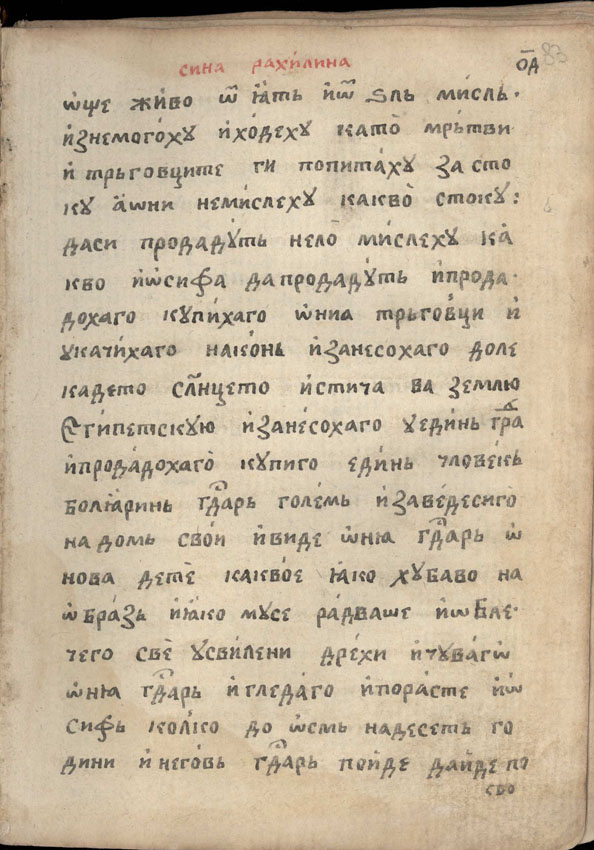 сина рахи́лина
ѡ҃д 83
ѡще жи́во ѿ ꙗ҆́ть и҆ѿ ѕль ми́сль·
и҆знемого́ху и҆хо́деху като̀ мрь́тви
и҆ трьговците ги попита́ху за сто
ку а҆́ѡни неми́слеху какво̀ стоку:
даси продаду́ть нело̀ ми́слеху ка
кво и҆ѡ́сифа да продаду́ть и҆прода·
дохаго купи́хаго ѡ҆ниа трьго́вци и҆
укачи́хаго нако́нь и҆занесохаго доле
кадето сл҃нцето и҆стича ва землю
Єги́петскую и҆зане́сохаго уеди́нь гра
и҆прода́дохаго̀ купиго еди́нь чловекь
болꙗ́ринь гд҃арь големь и҆заве́десиго̀
на домь свои́ и҆виде ѡ҆ниꙗ гд҃арь ѡ҆
нова детѐ какво́е ꙗ҆ко хубаво на
ѡ҆бра́зь и҆ꙗ҆ко мусе ра́дваше и҆ѡбле·
чего свѐ усви́лени дре́хи и҆чува́гѡ
ѡ҆ниꙗ гд҃арь и҆ гледа́го и҆пора́сте и҆ѡ́
сифь коли́ко до ѡ҆смь надесеть го
дини и҆ него́вь гд҃арь пои́де да и҆́де по
сво